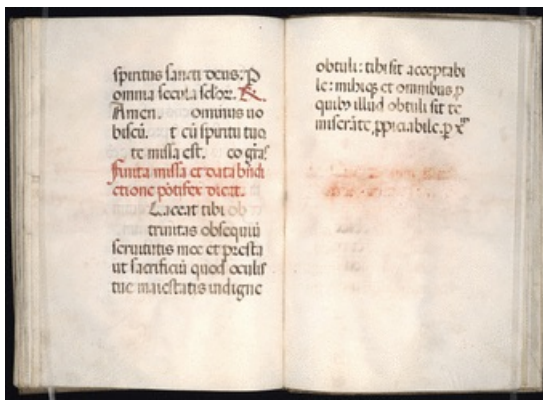 spiritus sancti deus: P
omnia secula sclor̃. R.
Amen. ominus uo
biscũ. t cũ spiritu tuo.
te missa est. eo grãs
Finita missa et data bñdi
ctione põtifex dicat.
Laceat tibi ob
trinitas obsequiũ
seruitutis mee et presta
ut sacrificiũ quod oculis
tue maiestatis indigne
obtuli: tibi sit acceptabi
le: mihiq; et omnibus p
quibꝯ illud obtuli sit te
miserãte ꝓpiciabile. p xp̃